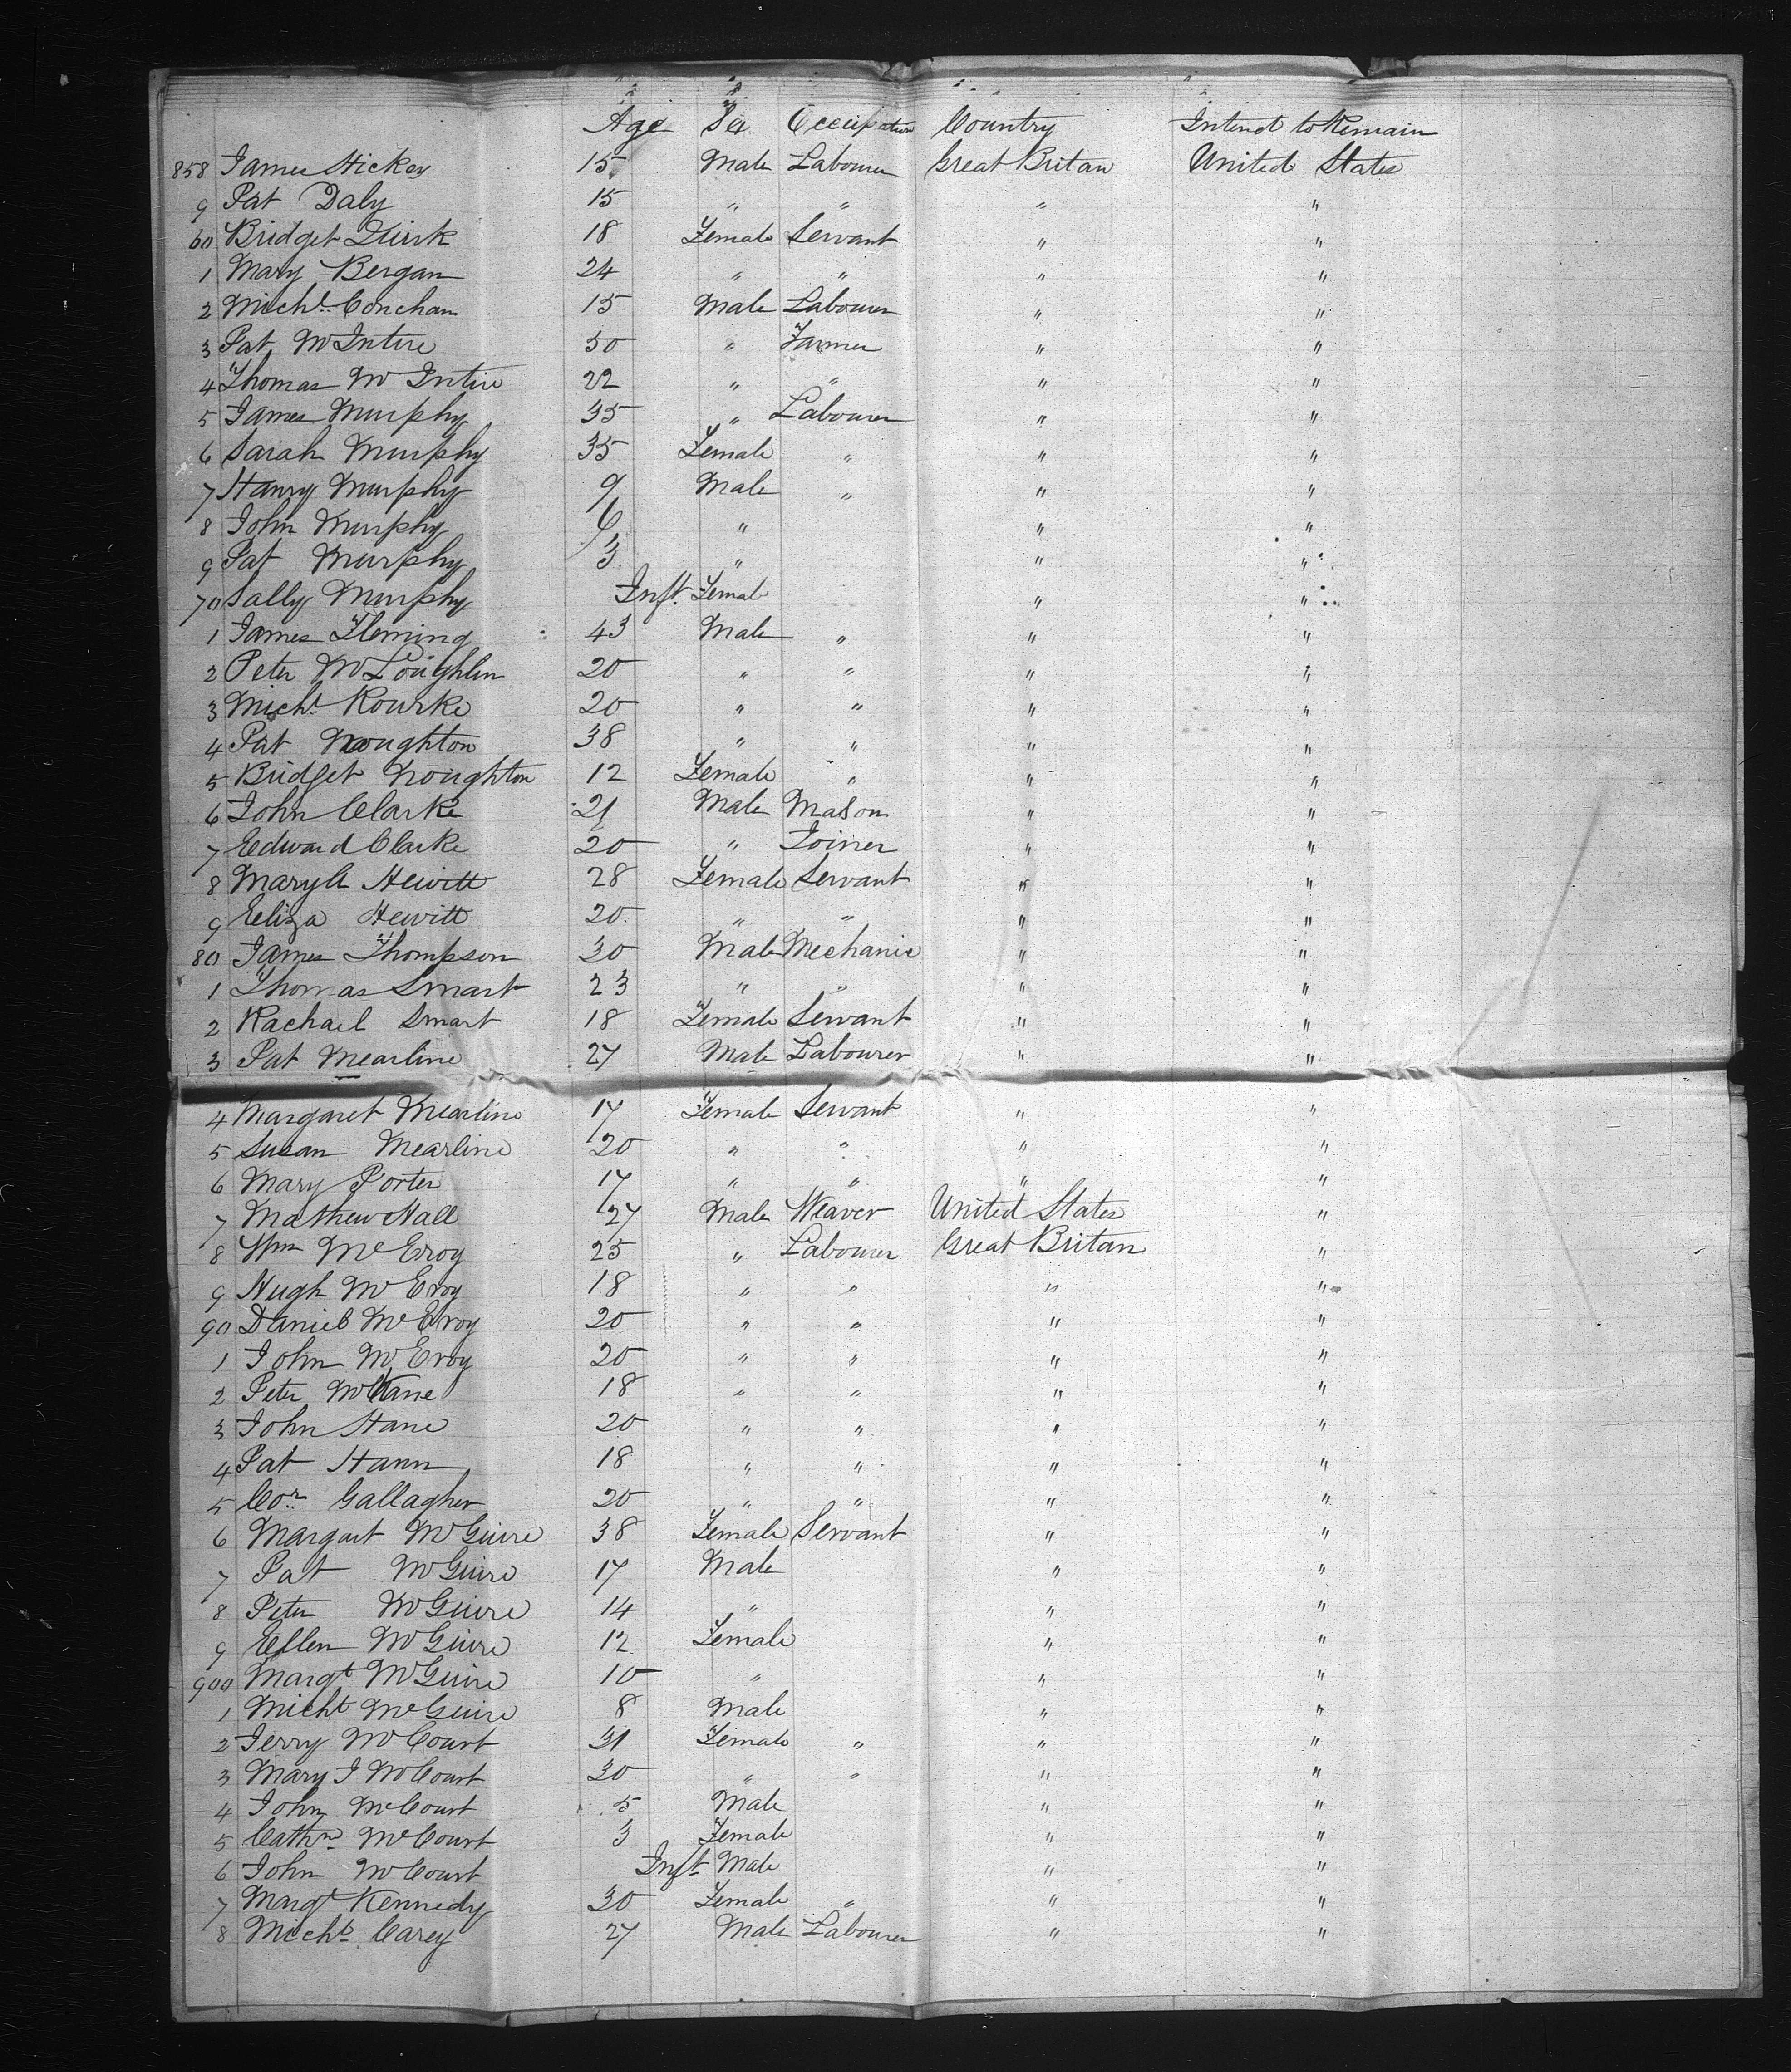 Age Sex Occupation Country Intend to Remain
858 James Hickey 15 Male Labourer Great Britan United States
9 Pat Daly 15 " " " "
60 Bridget Quirk 18 Female Servant " "
1 Mary Bergan 24 " " " "
2 Michl Concham 15 Male Labourer " "
3 Pat McIntire 50 " Farmer " "
4 Thomas McIntire 22 " " " "
5 James Murphy 35 " Labourer " "
6 Sarah Murphy 35 Female " " "
7 Hanry Murphy 9 Male " " "
8 John Murphy 6 " " "
9 Pat Murphy 3 " " "
70 Sally Murphy Inft. Female " "
1 James Fleming 43 Male " " "
2 Peter McLoughlin 20 " " " "
3 Michl Rourke 20 " " " "
4 Pat Noughton 38 " " " "
5 Bridget Noughton 12 Female " " "
6 John Clarke 21 Male Mason " "
7 Edward Clarke 20 " Joiner " "
8 Mary A Hewitt 28 Female Servant " "
9 Eliza Hewitt 20 " " " "
80 James Thompson 30 Male Mechanic " "
1 Thomas Smart 23 " " " "
2 Rachael Smart 18 Female Servant " "
3 Pat Mearline 27 Male Labourer " "
4 Margaret Mearline 17 Female Servant " "
5 Susan Mearline 20 " " " "
6 Mary Porter 17 " " " "
7 Mathew Hall 27 Male Weaver United States "
8 Wm McEroy 25 " Labourer Great Britan "
9 Hugh McEroy 18 " " " "
90 Daniel McEroy 20 " " " "
1 John McEroy 20 " " " "
2 Peter McKane 18 " " " "
3 John Hane 20 " " " "
4 Pat Hann 18 " " " "
5 Cor. Gallagher 20 " " " "
6 Margart McGuire 38 Female Servant " "
7 Pat McGuire 17 Male " "
8 Peter McGuire 14 " " "
9 Ellen McGuire 12 Female " "
900 Margt McGuire 10 " " "
1 Michl McGuire 8 Male " "
2 Jerry McCourt 31 Female " " "
3 Mary J McCourt 30 " " " "
4 John McCourt 5 Male " "
5 Cathn McCourt 3 Female " "
6 John McCourt Inft Male " "
7 Margt Kennedy 30 Female " " "
8 Michl Carey 27 Male Labourer " "